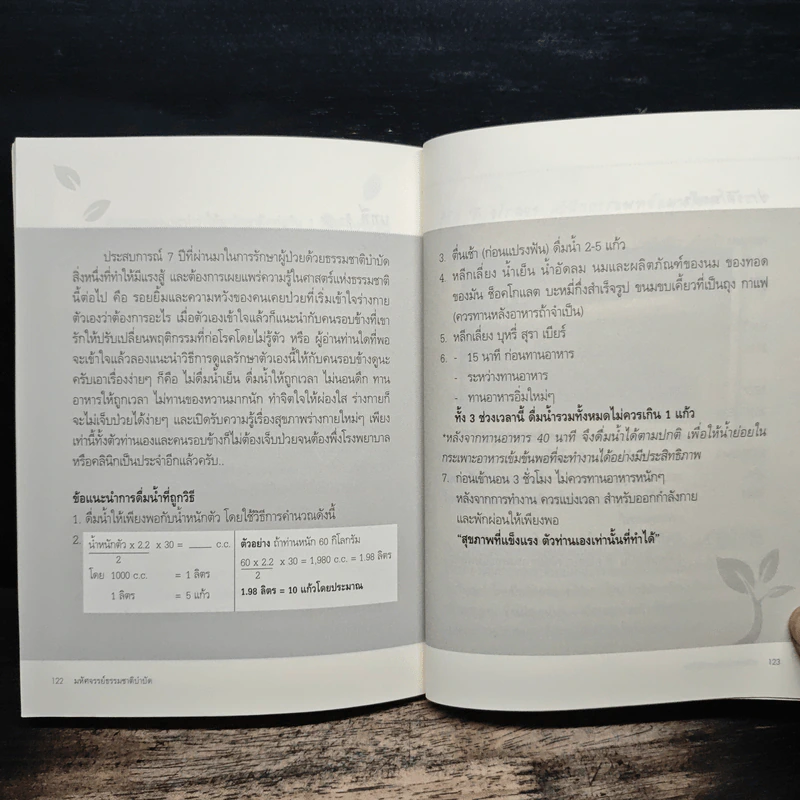 ประสบการณ์ 7 ปีที่ผ่านมาในการรักษาผู้ป่วยด้วยธรรมชาติบำบัด
สิ่งหนึ่งที่ทำให้มีแรงสู้ และต้องการเผยแพร่ความรู้ในศาสตร์แห่งธรรมชาติ
นี้ต่อไป คือ รอยยิ้มและความหวังของคนเคยป่วยที่เริ่มเข้าใจร่างกาย
ตัวเองว่าต้องการอะไร เมื่อตัวเองเข้าใจแล้วก็แนะนำกับคนรอบข้างที่เขา
รักให้ปรับเปลี่ยนพฤติกรรมที่ก่อโรคโดยไม่รู้ตัว หรือ ผู้อ่านท่านใดที่พอ
จะเข้าใจแล้วลองแนะนำวิธีการดูแลรักษาตัวเองนี้ให้กับคนรอบข้างดูนะ
ครับเอาเรื่องง่ายๆ ก็คือ ไม่ดื่มน้ำเย็น ดื่มน้ำให้ถูกเวลา ไม่นอนดึก ทาน
อาหารให้ถูกเวลา ไม่ทานของหวานมากนัก ทำจิตใจให้ผ่องใส ร่างกายก็
จะไม่เจ็บป่วยได้ง่ายๆ และเปิดรับความรู้เรื่องสุขภาพร่างกายใหม่ๆ เพียง
เท่านี้ทั้งตัวท่านเองและคนรอบข้างก็ไม่ต้องเจ็บป่วยจนต้องพึ่งโรงพยาบาล
หรือคลินิกเป็นประจำอีกแล้วครับ..
ข้อแนะนำการดื่มน้ำที่ถูกวิธี
1. ดื่มน้ำให้เพียงพอกับน้ำหนักตัว โดยใช้วิธีการคำนวณดังนี้
2. น้ำหนักตัว x 2.2 x 30 = ____ c.c.
2
โดย 1000 c.c. = 1 ลิตร
1 ลิตร = 5 แก้ว
ตัวอย่าง ถ้าท่านหนัก 60 กิโลกรัม
60 x 2.2 x 30 = 1,980 c.c. = 1.98 ลิตร
2
1.98 ลิตร = 10 แก้วโดยประมาณ
122 มหัศจรรย์ธรรมชาติบำบัด
3. ตื่นเช้า (ก่อนแปรงฟัน) ดื่มน้ำ 2-5 แก้ว
4. หลีกเลี่ยง น้ำเย็น น้ำอัดลม นมและผลิตภัณฑ์ของนม ของทอด
ของมัน ช็อคโกแลต บะหมี่กึ่งสำเร็จรูป ขนมขบเคี้ยวที่เป็นถุง กาแฟ
(ควรทานหลังอาหารถ้าจำเป็น)
5. หลีกเลี่ยง บุหรี่ สุรา เบียร์
6. - 15 นาที ก่อนทานอาหาร
- ระหว่างทานอาหาร
- ทานอาหารอิ่มใหม่ๆ
ทั้ง 3 ช่วงเวลานี้ ดื่มน้ำรวมทั้งหมดไม่ควรเกิน 1 แก้ว
*หลังจากทานอาหาร 40 นาที จึงดื่มน้ำได้ตามปกติ เพื่อให้น้ำย่อยใน
กระเพาะอาหารเข้มข้นพอที่จะทำงานได้อย่างมีประสิทธิภาพ
7. ก่อนเข้านอน 3 ชั่วโมง ไม่ควรทานอาหารหนักๆ
หลังจากการทำงาน ควรแบ่งเวลา สำหรับออกกำลังกาย
และพักผ่อนให้เพียงพอ
"สุขภาพที่แข็งแรง ตัวท่านเองเท่านั้นที่ทำได้"
123